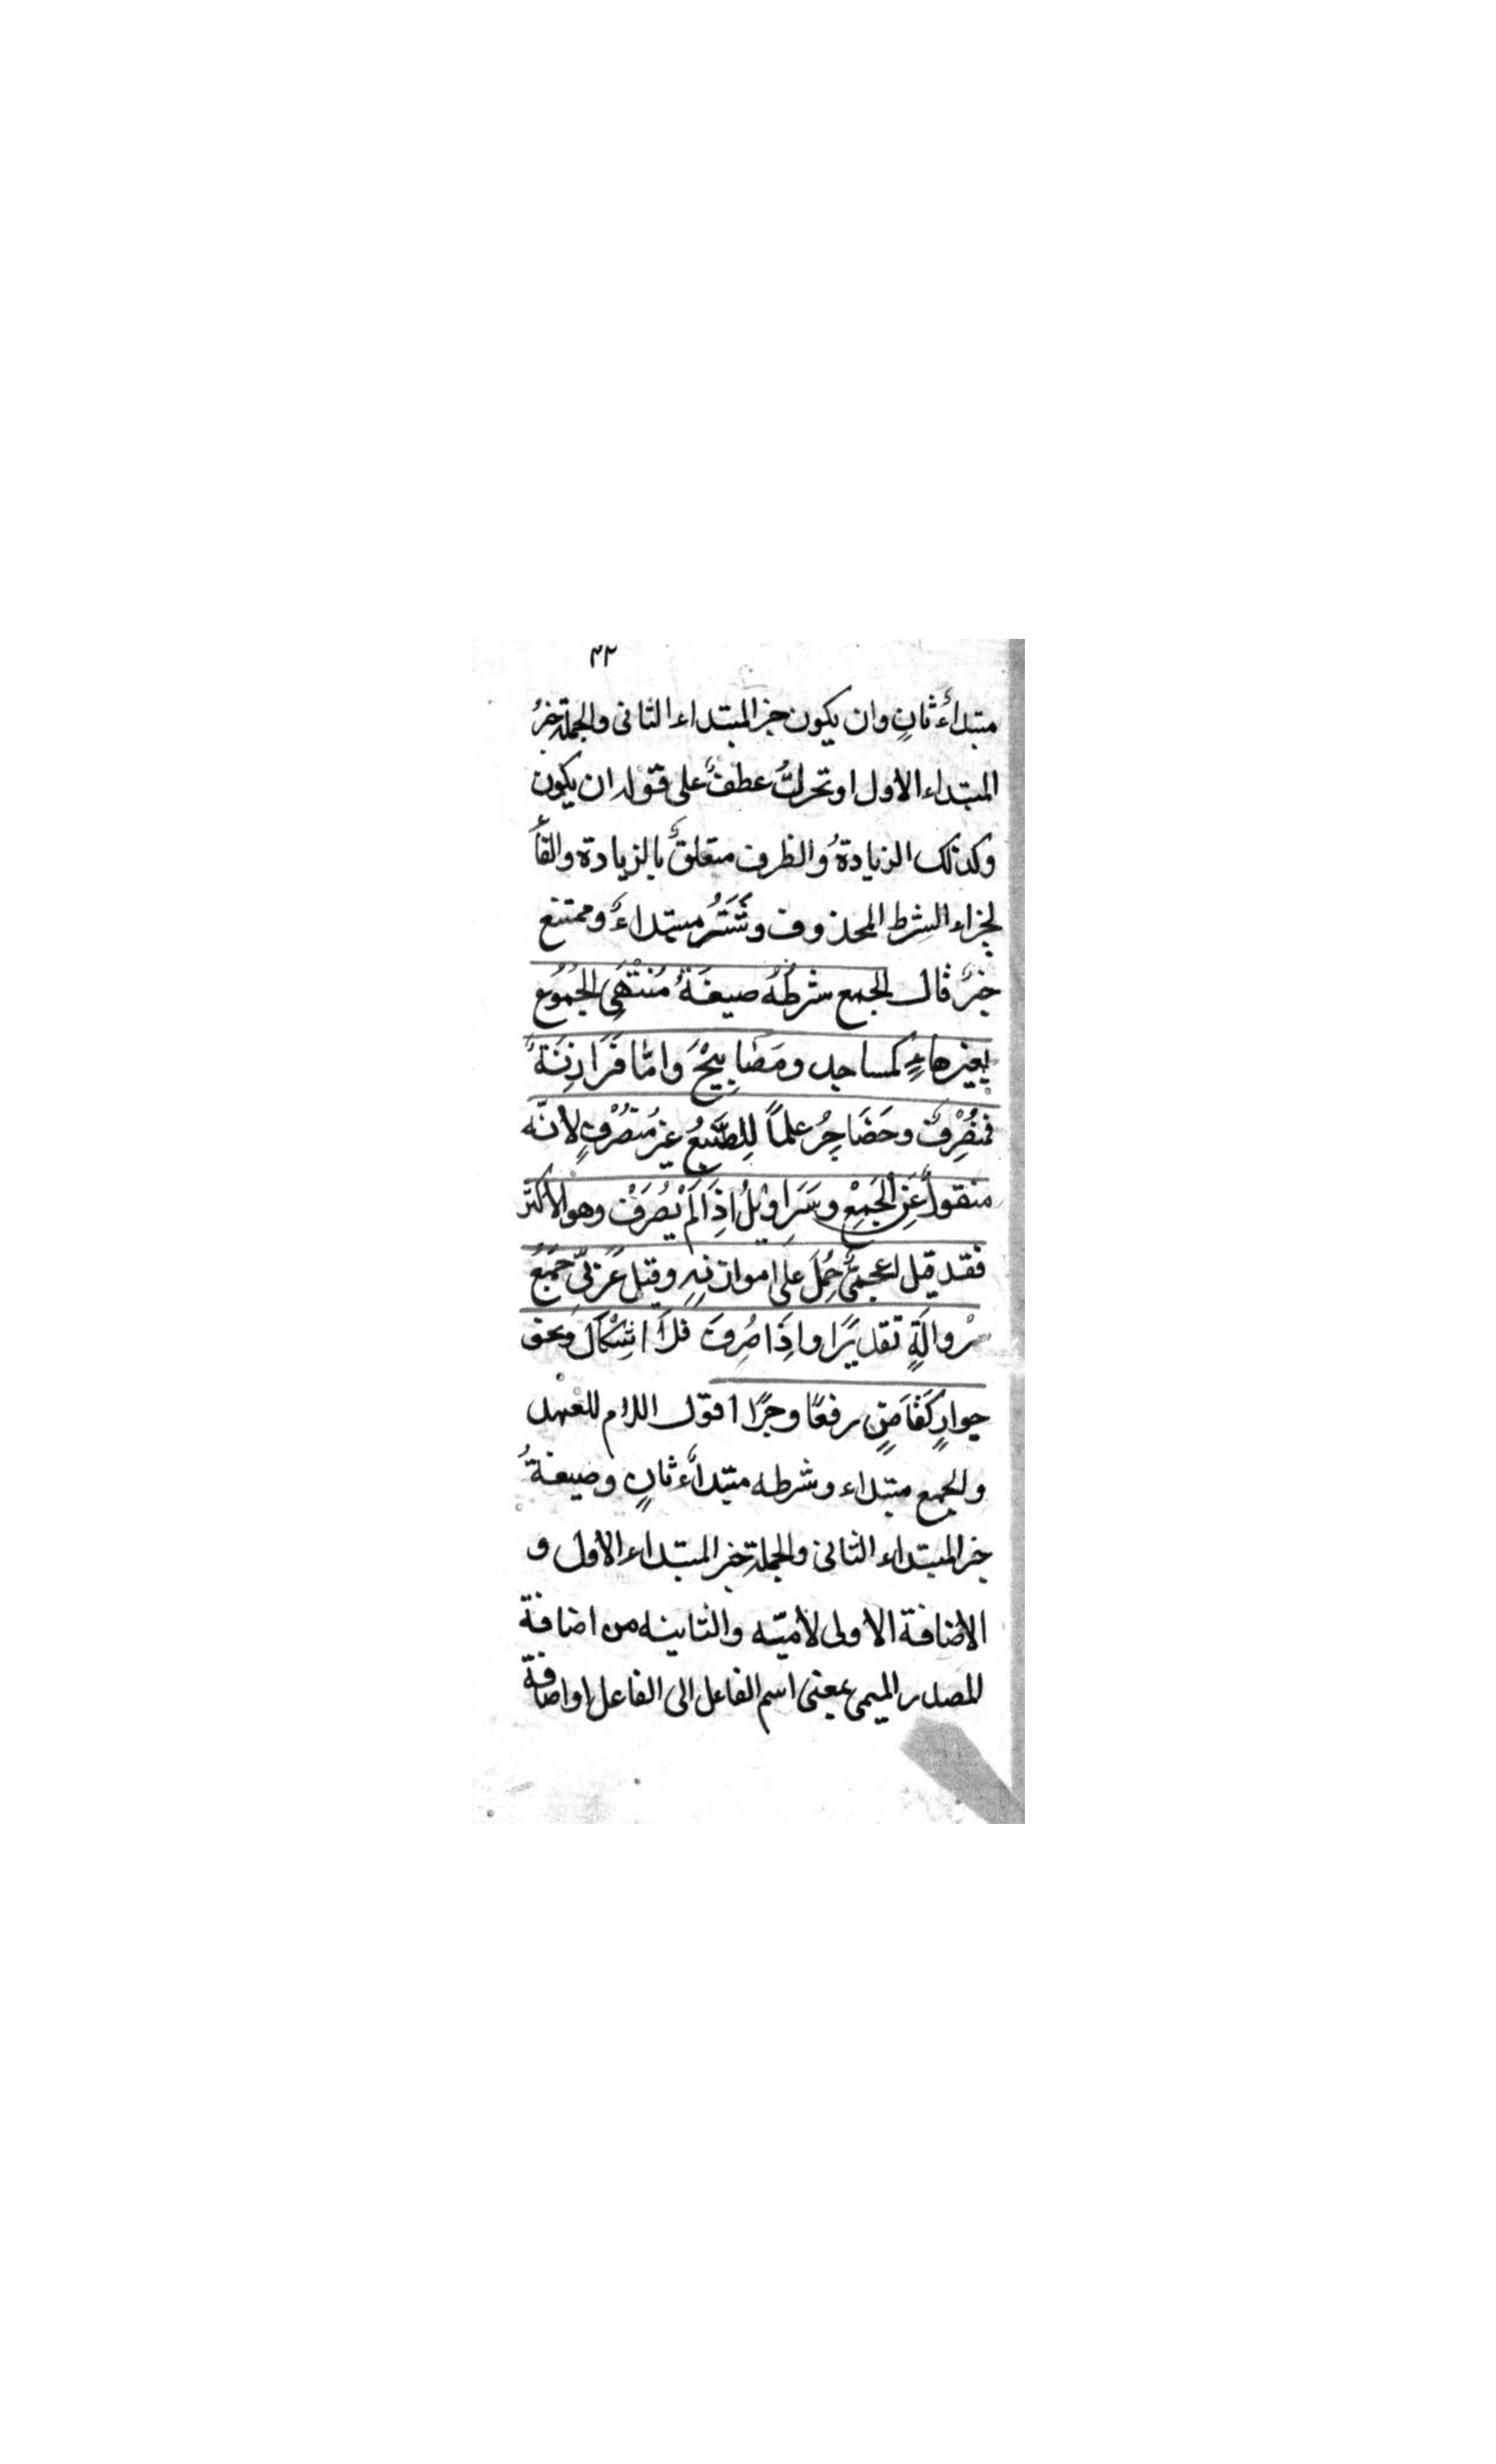 ٤٢
مبتداءٌ ثانٍ وان يكون خبر المبتداء الثانى والجملة خبرُ
المبتداء الاول او تحركُ عطفٌ على قوله ان يكون
وكذلك الزيادةُ والظرف متعلقٌ بالزيادة والفأ
لجزاء الشرط المحذوف وشَتَرُ مبتداءٌ وممتنع
خبرٌ قال الجمع شرطُهُ صيغَةُ مُنْتَهَى الجُمُوُعِ
بغيرهاءٍ كمساجد ومَصَابِيْحَ وامّا فَرَازِنَةٌ
فمنصُرِفٌ وحَضَاجِرُ علماً لِلضَّبُعِ غيرُ منصُرْفٍ لأنّه
منقولٌ عَنِ الجَمْعِ وسَرَاوِيْلُ اذَا لَمْ يُصْرَفْ وهو الاكثر
فقد قيل اعجمىٌّ حُمِلَ على موازنِهِ وقيل عَرَبىٌّ جَمْعُ
سِرْوالَةٍ تقديرًا واذَا صُرِفَ فلَا اشْكَالَ ونحو
جوارٍ كَقَاضٍ رفعًا وجَرًّا اقول اللام للعهد
والجمع مبتداء وشرطه مبتداءٌ ثانٍ وصيغةُ
خبر المبتداء الثانى والجملة خبر المبتداء الأول و
الاضافة الاولى لأميّه والثانيه من اضافة
المصدر الميمى بمعنى اسم الفاعل الى الفاعل او اضافة